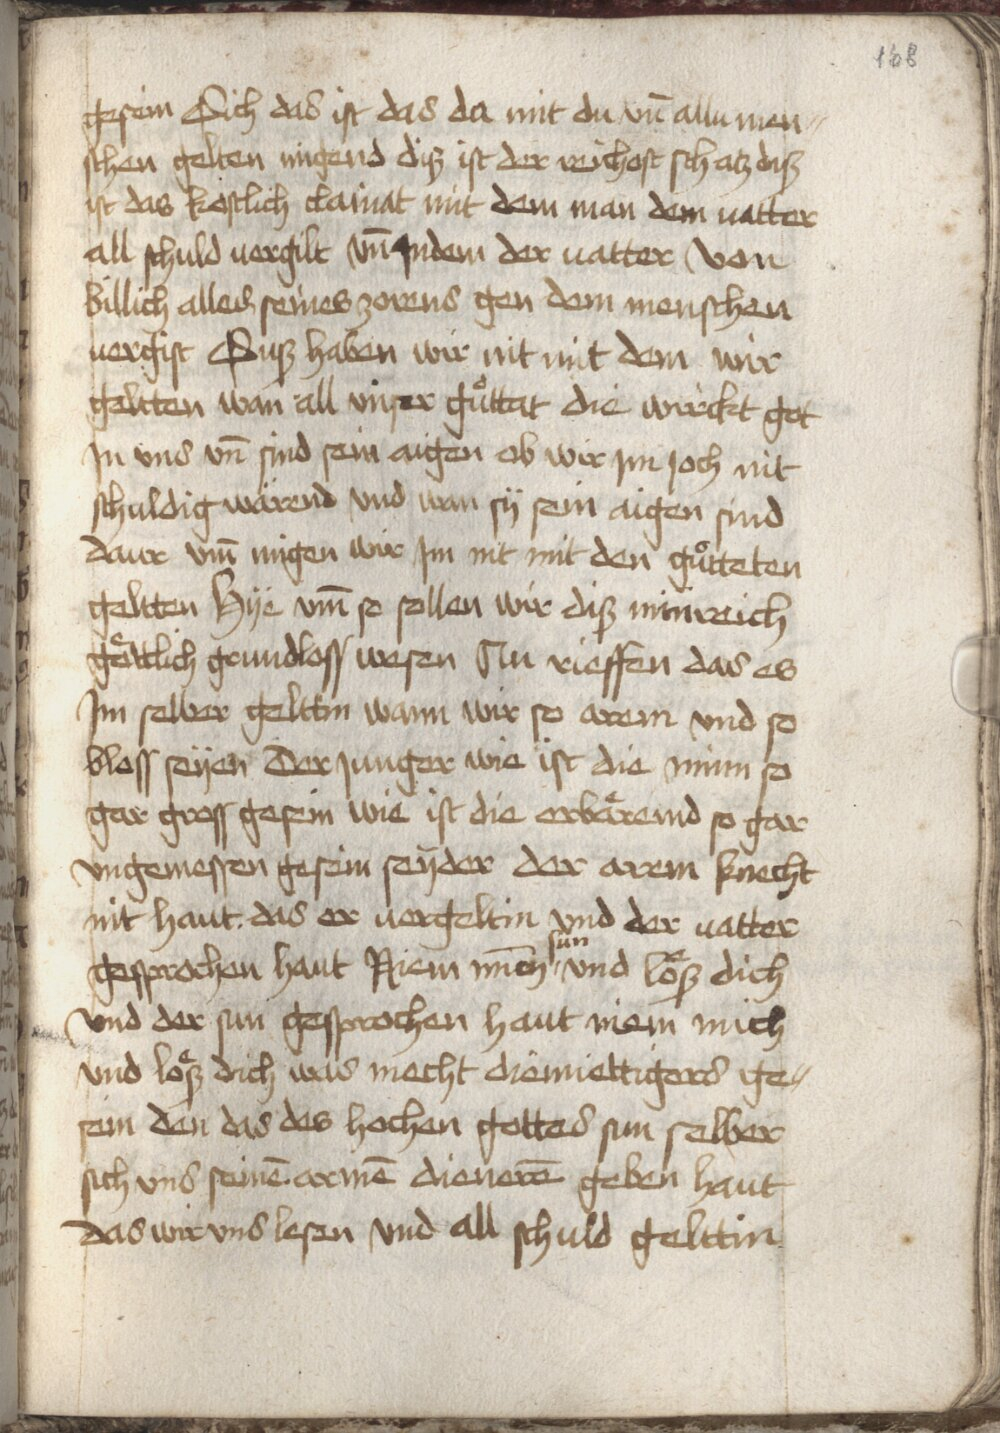 168
gesein Sich das ist das da mit du vn̄ allu men„
schen gelten mügend diß ist der reichost schatz diß
ist das kostlich clainat mit dem man dem uatter
all schuld uergilt vn̄ Indem der uatter von
billich alles seines zorens gen dem menschen
uergist Suß haben wir nit mit dem wir
geltten wan all vnser gůttat die wirckt got
In vns vn̄ sind sein aigen ob wir im ioch nit
schuldig wärend vnd wan sÿ sein aigen sind
daur vm̄ mügen wir Im nit mit den gůtteten
geltten Hÿe vm̄ so sollen wir diß minreich
göttlich grundloss wesen An rieffen das es
Im selber gelttin wann wir so arem vnd so
bloss seÿen Der Junger wie ist die minn so
gar gross gesein wie ist die erbäremd so gar
vngemessen gesein seÿder der arem knecht
nit haut. das er uergeltin vnd der uatter
gesprochen haut Niem mich sun vnd löß dich
vnd der sun gesprochen haut niem mich
vnd löß dich was mecht diemiettigers ge„
sein den das des hochen gottes sun selber
sich vns seinē armē dienerē geben haut
das wir vns lesen vnd all schuld gelttin